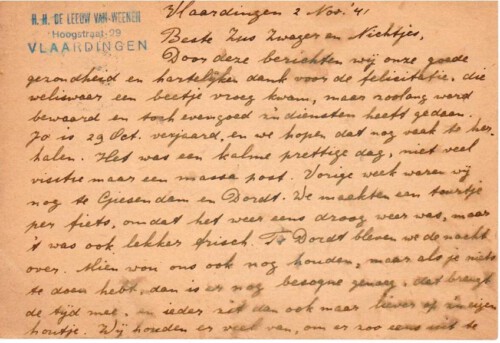 H. H. DE LEEUW VAN WEENEN
Hoogstraat 29
VLAARDINGEN
Vlaardingen 2 Nov. '41
Beste Zus Zwager en Nichtjes,
Door deze berichten wij onze goede
gezondheid en hartelijken dank voor de felicitatie, die
weliswaar een beetje vroeg kwam, maar zoolang werd
bewaard en toch evengoed zn diensten heeft gedaan.
Jo is 29 Oct. verjaard, en we hopen dat nog vaak te her-
halen. Het was een kalme prettige dag, niet veel
visite maar een massa post. Vorige week waren wij
nog te Giesendam en Dordt. We maakten een tourtje
per fiets, omdat het weer eens droog weer was, maar
't was ook lekker frisch. Te Dordt bleven we de nacht
over. Mien won ons ook nog houden, maar als je niets
te doen hebt, dan is er nog besogne genoeg, dat brengt
de tijd mee, en ieder zit dan ook maar liever op zn eigen
houtje. Wij houden er veel van, om er zoo eens uit te